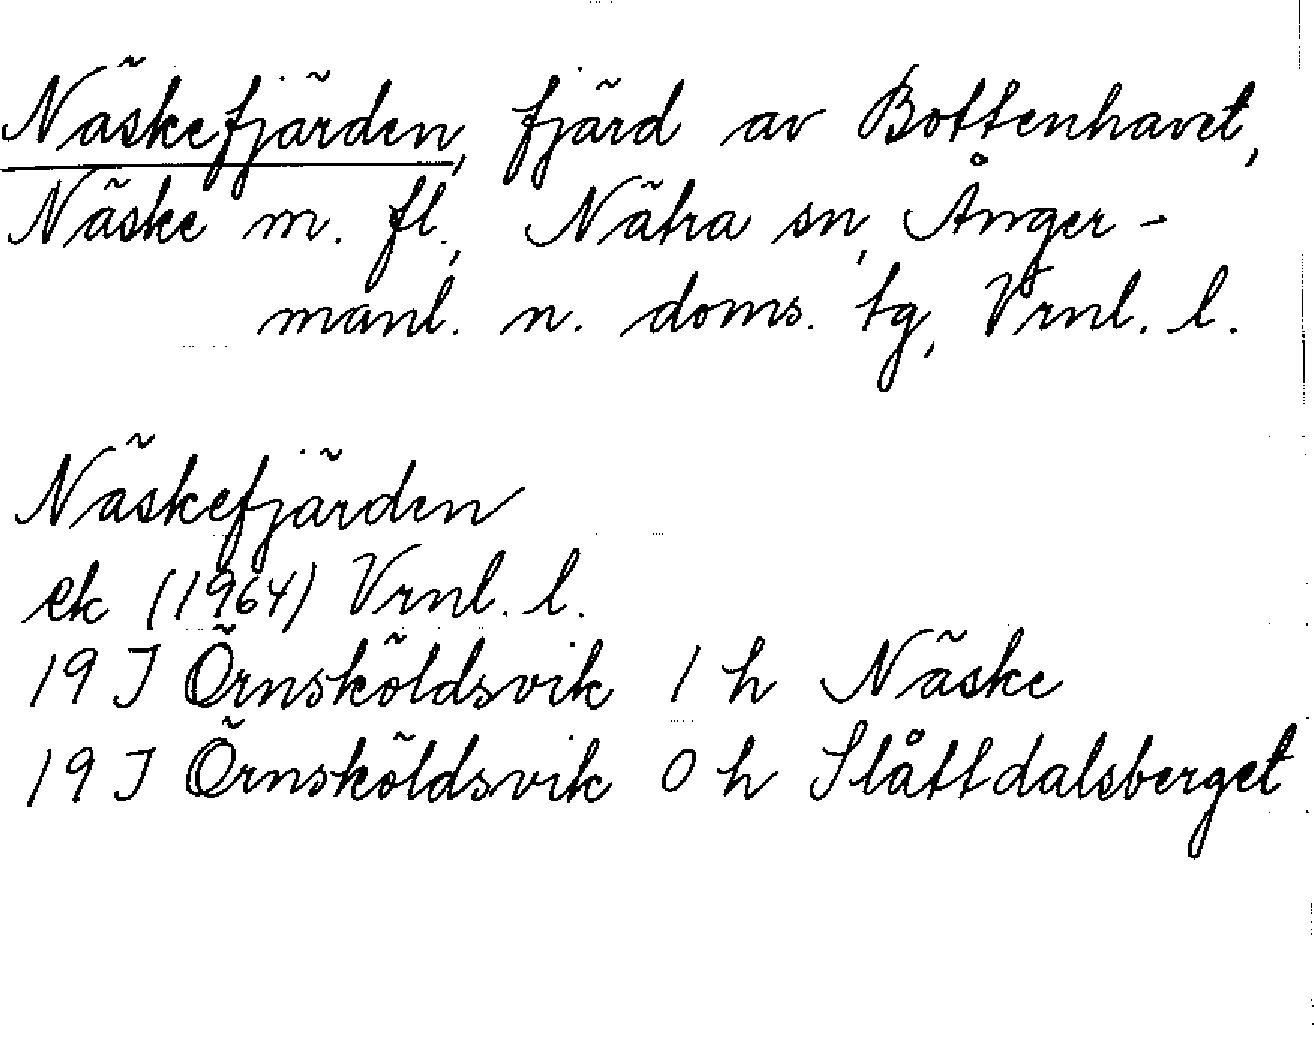 Näskefjärden, fjärd av Bottenhavet,
Näske m. fl., Nätra sn, Ånger-
manl. n. doms. tg, Vrnl. l.
Näskefjärden
ek (1964) Vrnl. l.
19 J Örnsköldsvik 1 h Näske
19 J Örnsköldsvik 0 h Slåttdalsberget